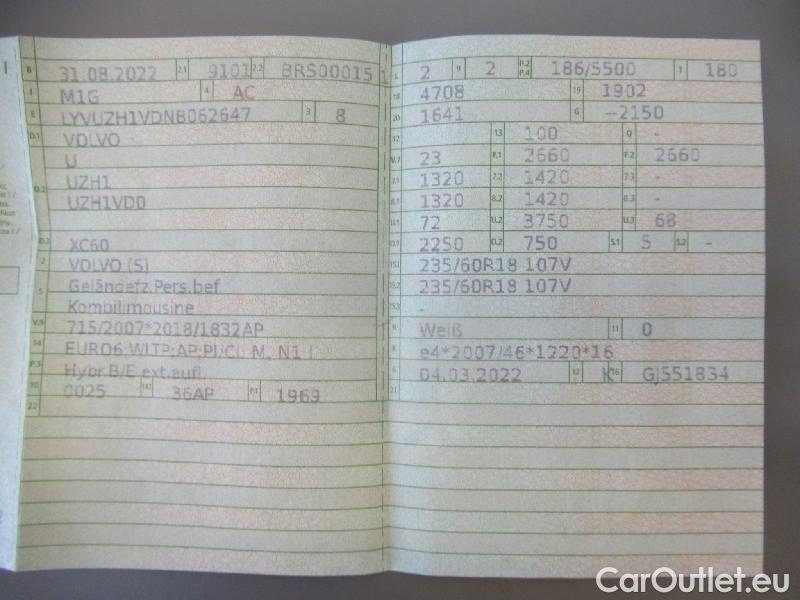 B 31.08.2022 2.1 9101 2.2 BRS00015 1
J M1G 4 AC
E LYVUZH1VDNB062647 3 8
D.1 VOLVO
U
D.2 UZH1
UZH1VD0
D.3 XC60
2 VOLVO (S)
5 Geländefz.Pers.bef
Kombilimousine
V.9 715/2007*2018/1832AP
14 EURO6;WLTP;AP;PI/CI, M, N1 I
P.3 Hybr.B/E ext.aufl.
10 0025 14.1 36AP P.1 1969
22
L 2 9 2 P.2 P.4 186/5500 T 180
18 4708 19 1902
20 1641 G -2150
12 13 100 Q -
V.7 23 F.1 2660 F.2 2660
7.1 1320 7.2 1420 7.3 -
8.1 1320 8.2 1420 8.3 -
U.1 72 U.2 3750 U.3 68
O.1 2250 O.2 750 S.1 5 S.2 -
15.1 235/60R18 107V
15.2 235/60R18 107V
15.3 -
R Weiß 11 0
K e4*2007/46*1220*16
6 04.03.2022 17 K 16 GJ551834
21
CarOutlet.eu